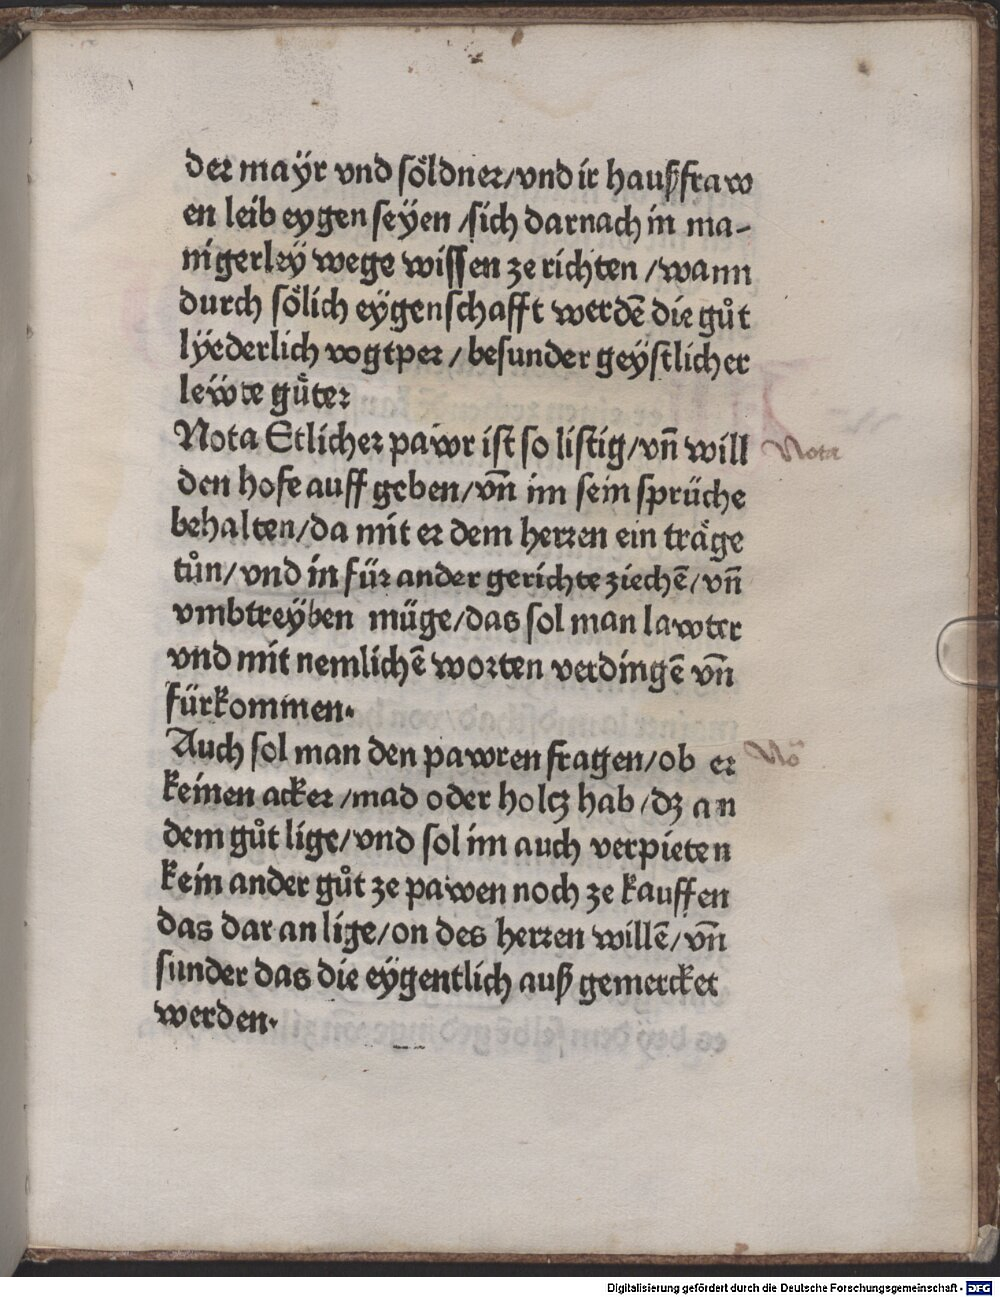 der maÿr vnd soͤldner/vnd ir haußfraw
en leib eygen seÿen /sich darnach in ma-
nigerleÿ wege wissen ze richten /wann
durch soͤlich eÿgenschafft werdē die guͦt
lÿederlich vogtper /besunder geÿstlicher
leẅte guͤter
Nota Etlicher pawr ist so listig/vn̄ will Nota
den hofe auff geben/vn̄ im sein sprüche
behalten/da mit er dem herren ein traͤge
tuͦn/vnd in für ander gerichte ziechē/vn̄
vmbtreÿben müge/das sol man lawter
vnd mit nemlichē worten verdingē vn̄
fürkommen.
Auch sol man den pawren fragen/ob er Nō
keinen acker /mad oder holcz hab /dz an
dem guͦt lige/vnd sol im auch verpieten
kein ander guͦt ze pawen noch ze kauffen
das dar an lige/on des herren willē/vn̄
sunder das die eÿgentlich auß gemercket
werden.
Digitalisierung gefördert durch die Deutsche Forschungsgemeinschaft - DFG